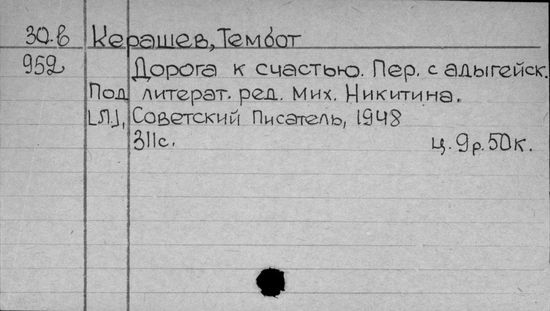 30.в Керашев, Тембот
952 Дорога к счастью. Пер. с адыгейск.
Под литерат. ред. Мих. Никитина.
[Л.], Советский Писатель, 1948
311с. ц. 9р. 50к.